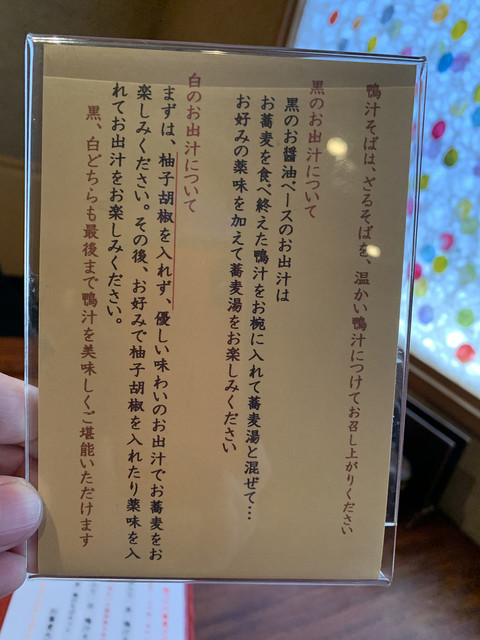 鴨汁そばは、ざるそばを、温かい鴨汁につけてお召し上がりください
黒のお出汁について
黒のお醤油ベースのお出汁は
お蕎麦を食べ終えた鴨汁をお椀に入れて蕎麦湯と混ぜて…
お好みの薬味を加えて蕎麦湯をお楽しみください
白のお出汁について
まずは、柚子胡椒を入れず、優しい味わいのお出汁でお蕎麦をお
楽しみください。その後、お好みで柚子胡椒を入れたり薬味を入
れてお出汁をお楽しみください。
黒、白どちらも最後まで鴨汁を美味しくご堪能いただけます